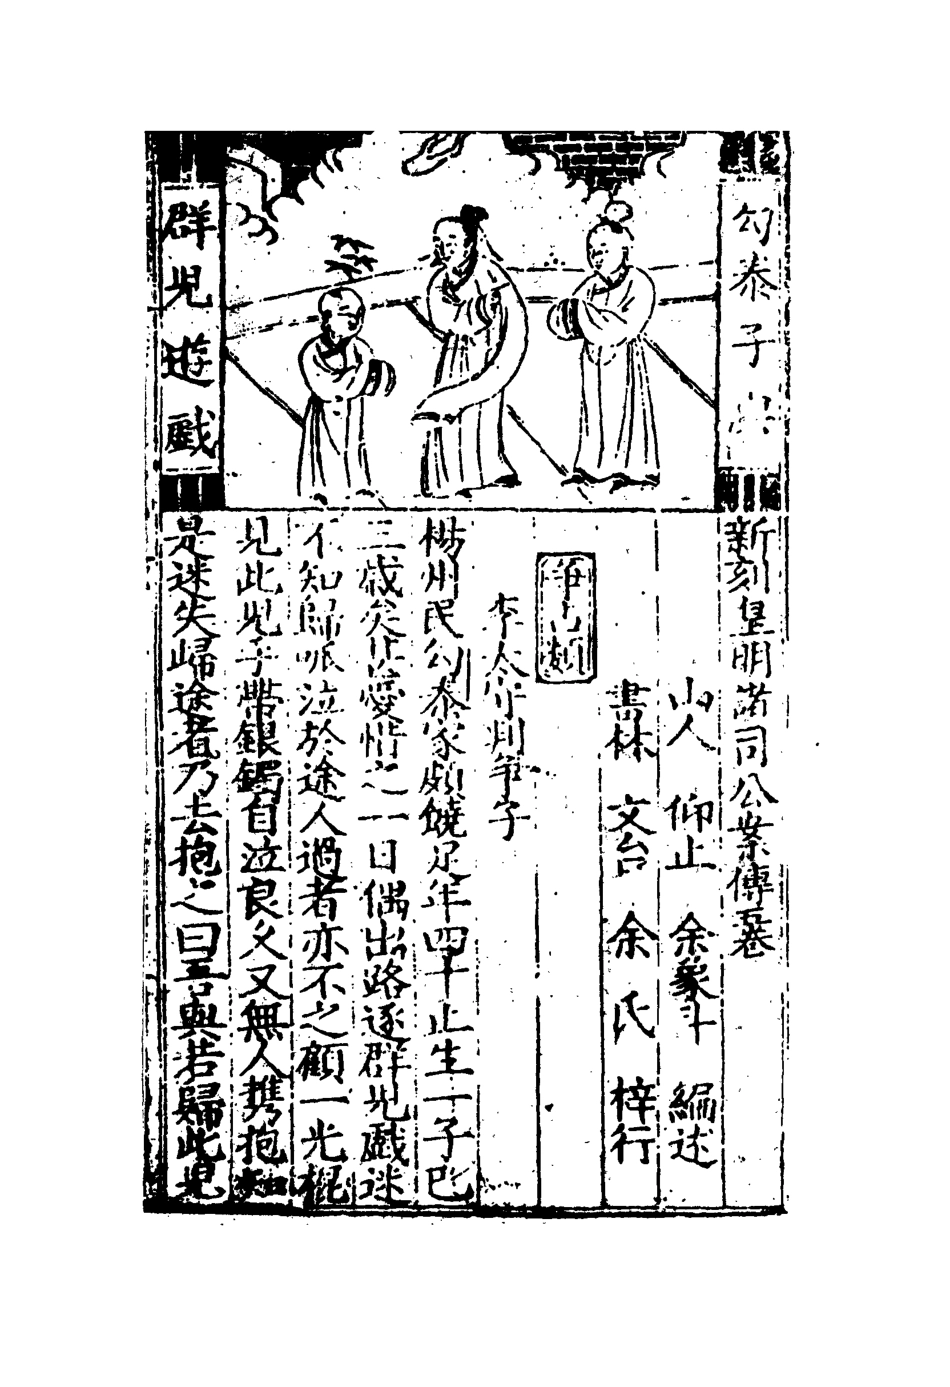 勾泰子
群兒遊戲
新刻皇明諸司公案傳五卷
山人 仰止 余象斗 編述
書林 文台 余氏 梓行
爭占類
李太守判爭子
楊州民勾泰家頗饒足年四十止生一子已
三歲矣甚愛惜之一日偶出路逐群兒戲迷
不知歸哌泣於途人過者亦不之顧一光棍
見此兒手帶銀鐲自泣良久又無人携抱知
是迷失歸途者乃去抱之曰吾與若歸此兒